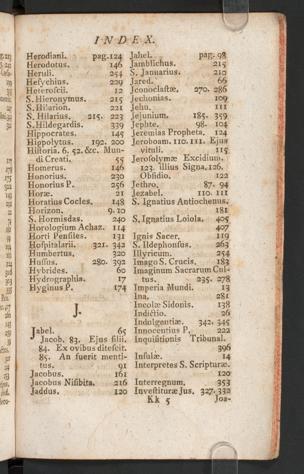 INDEX.
Herodiani. pag. 124
Herodotus. 146
Heruli. 254
Hesychius. 229
Heteroscii. 12
S. Hieronymus. 215
S. Hilarion. 221
S. Hilarius. 215. 223
S. Hildegardis. 339
Hippocrates. 145
Hippolytus. 192. 200
Historia. 6. 52. &c. Mun-
di Creati. 55
Homerus. 146
Honorius. 230
Honorius P. 256
Horæ. 21
Horatius Cocles. 148
Horizon. 9. 10
S. Hormisdas. 240
Horologium Achaz. 114
Horti Pensiles. 131
Hospitalarii. 321. 342
Humbertus. 320
Hussus. 280. 392
Hybrides. 60
Hydrographia. 17
Hyginus P. 174
J.
Jabel. 65
Jacob. 83. Ejus filii.
84. Ex ovibus ditescit.
85. An fuerit menti-
tus. 91
Jacobus. 161
Jacobus Nisibita. 216
Jaddus. 120
Jahel. pag. 98
Jamblichus. 215
S. Januarius. 210
Jared. 66
Jconoclastæ. 270. 286
Jechonias. 109
Jehu. 111
Jejunium. 185. 359
Jephte. 98. 104
Jeremias Propheta. 124
Jeroboam. 110. 111. Ejus
vituli. 115
Jerosolymæ Excidium.
123. illius Signa. 126.
Obsidio. 122
Jethro. 87. 94
Jezabel. 110. 111
S. Ignatius Antiochenus.
181
S. Ignatius Loiola. 405
407
Ignis Sacer. 119
S. Ildephonsus. 263
Illyricum. 254
Imago S. Crucis. 183
Imaginum Sacrarum Cul-
tus. 235. 278
Imperia Mundi. 13
Ina. 281
Incolæ Sidonis. 138
Indictio. 26
Indulgentiæ. 342. 345
Innocentius P. 222
Inquisitionis Tribunal.
396
Insulæ. 14
Interpretes S. Scripturæ.
120
Interregnum. 353
Investituræ Jus. 327. 332
Kk 5 Joa-